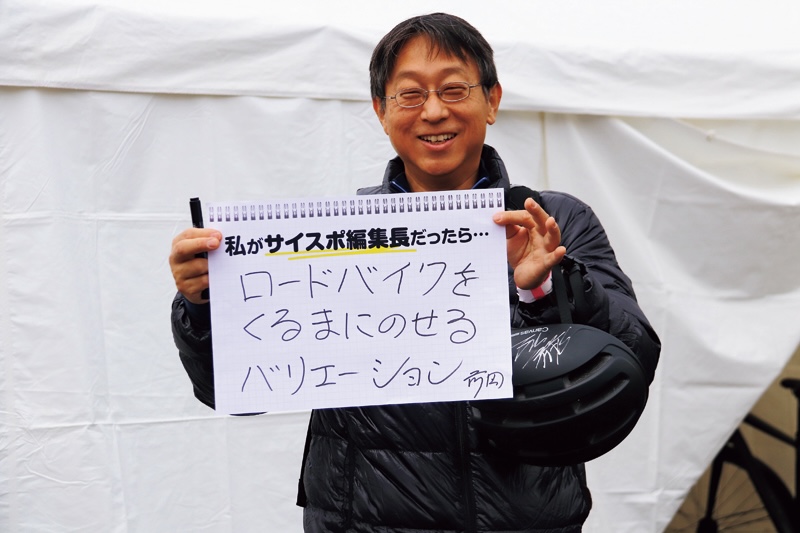 私がサイスポ編集長だったら…
ロードバイクを
くるまにのせる
バリエーション
Canvas